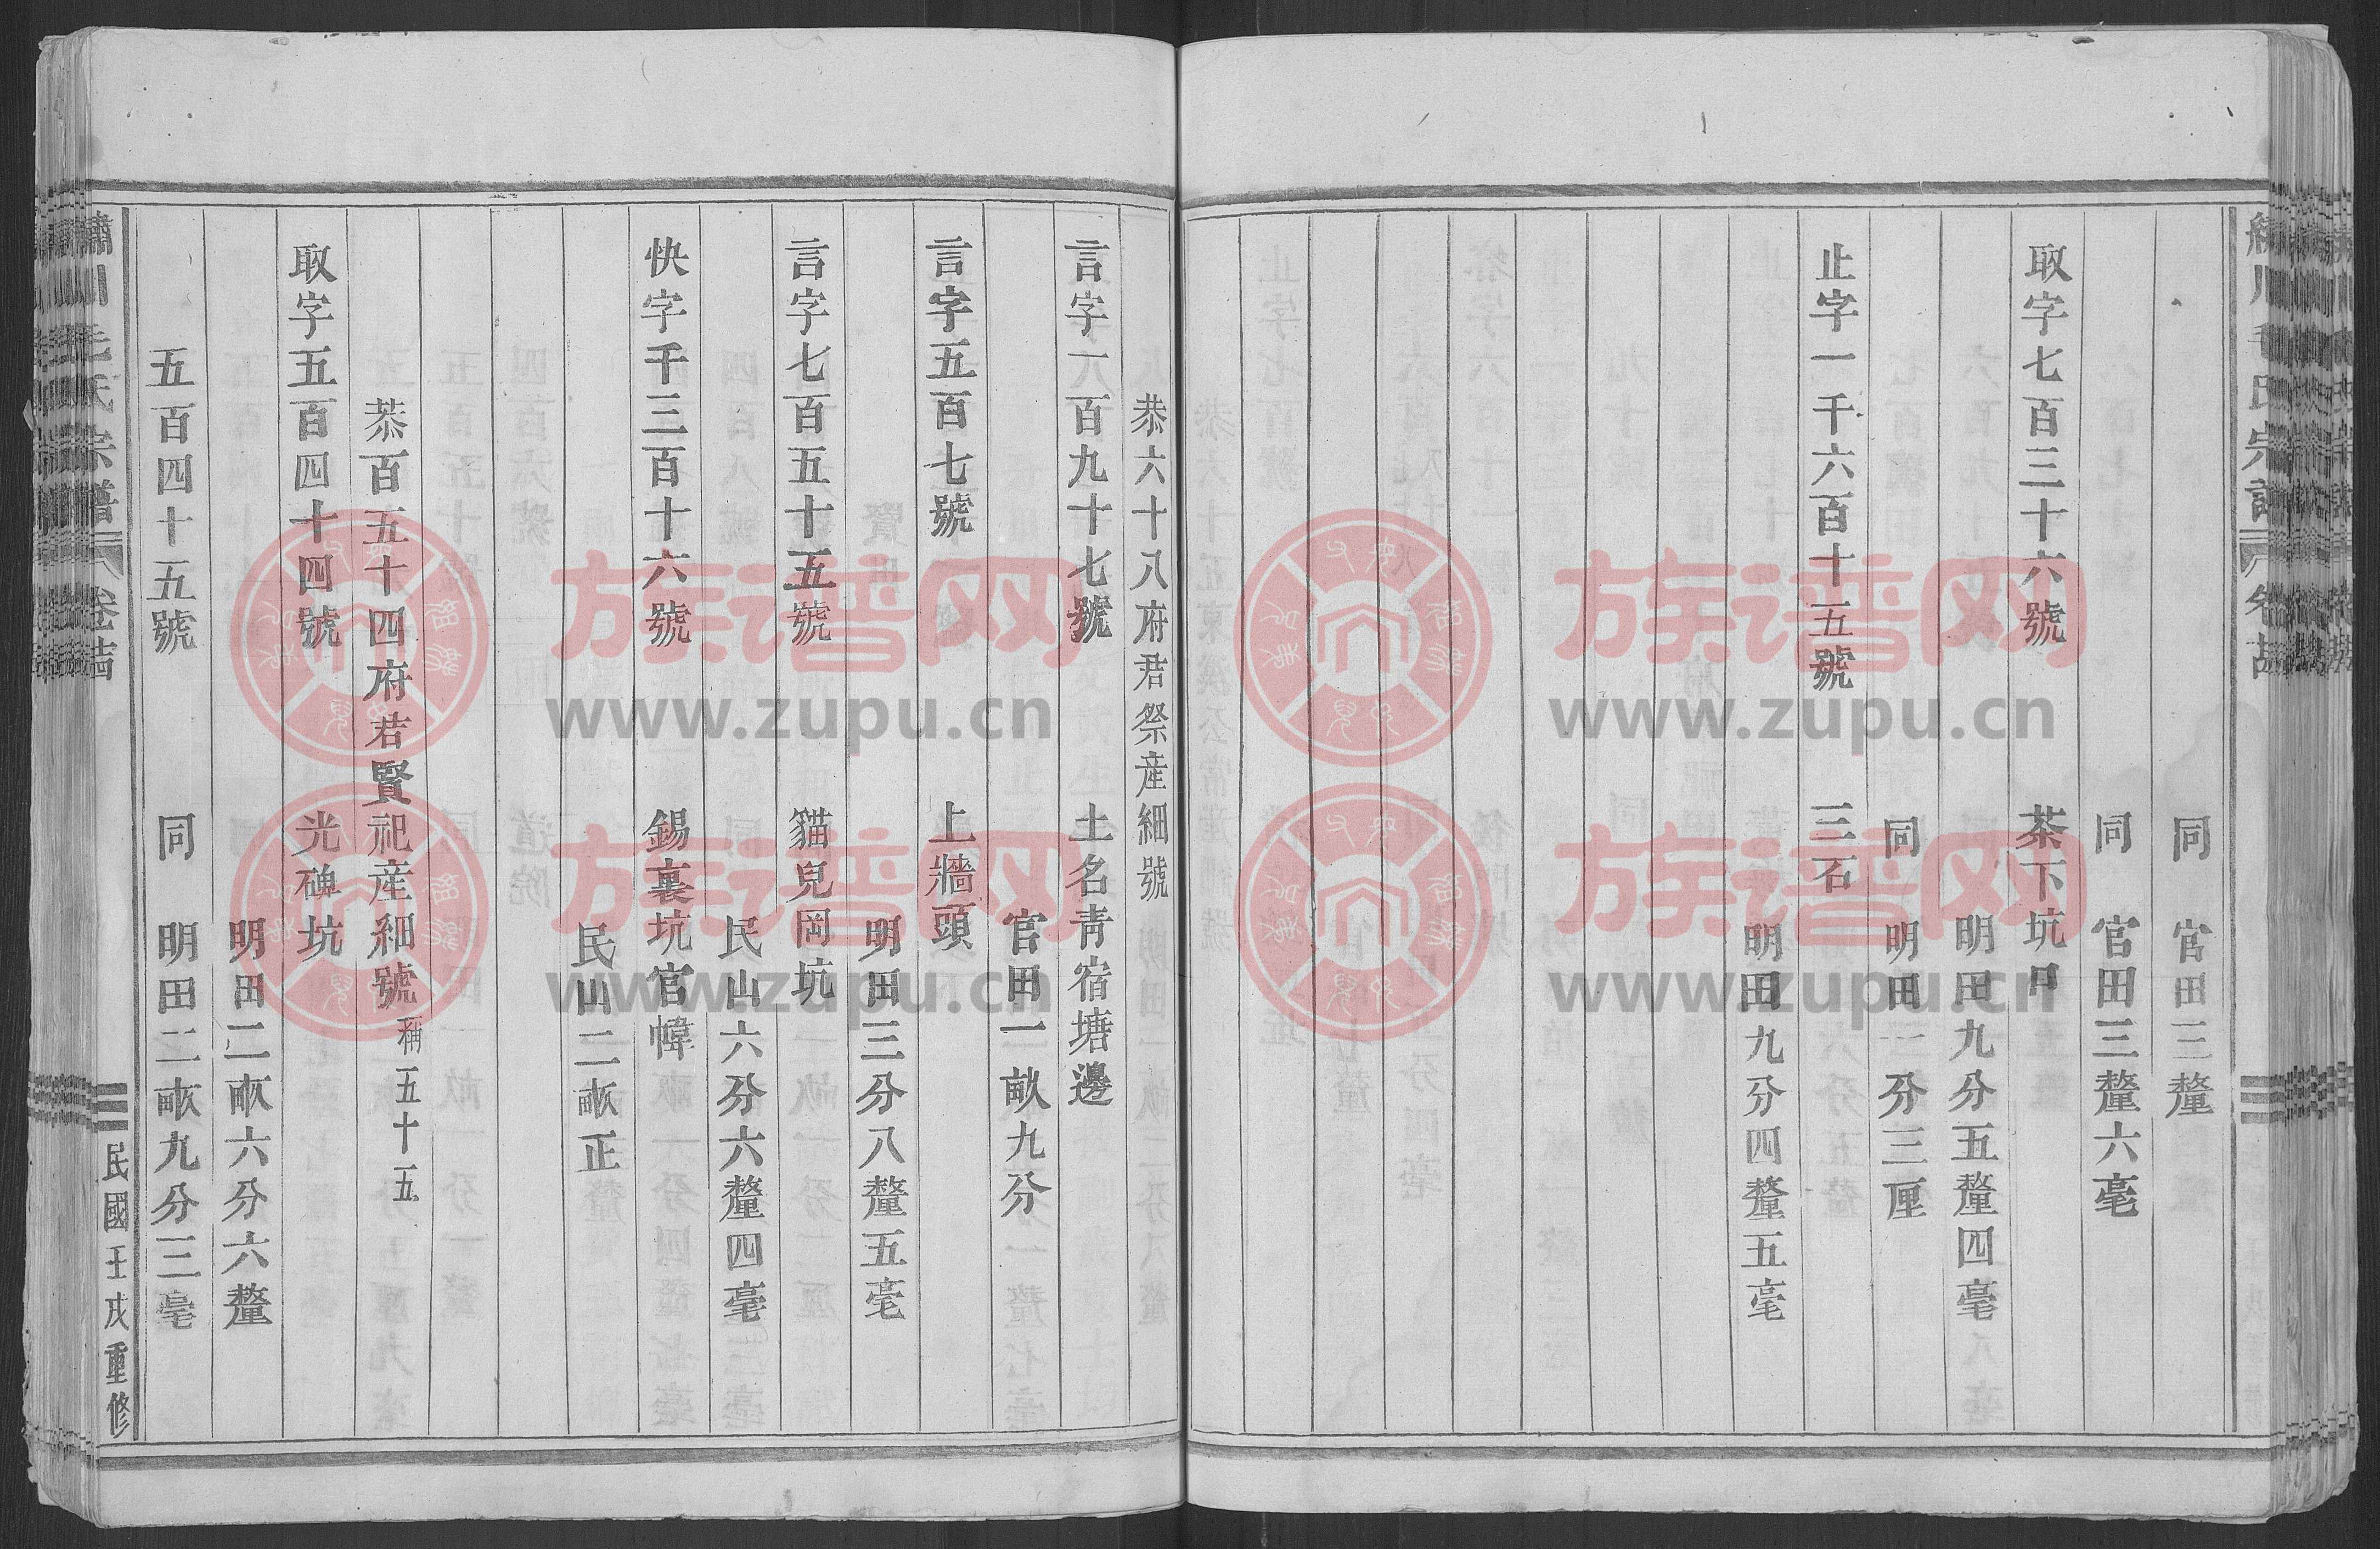 同 官田三釐
同 官田三釐六毫
取字七百三十六號 茶下坑口
明田九分五釐四毫
同 明田一分三厘
止字一千六百十五號 三石
明田九分四釐五毫
恭六十八府君祭產細號
言字八百九十七號 土名青宿塘邊
官田一畝九分
言字五百七號 上牆頭
明田三分八釐五毫
言字七百五十五號 貓兒岡坑
民山六分六釐四毫
快字千三百十六號 錫裏坑官幛
民山二畝正
恭百五十四府君賢祀產細號 稱五十五
取字五百四十四號 光碑坑
明田二畝六分六釐
五百四十五號 同 明田二畝九分三毫
繡川毛氏宗譜 卷
民國壬戌重修
族谱网
www.zupu.cn
族谱网
www.zupu.cn
族谱网
www.zupu.cn
族谱网
www.zupu.cn